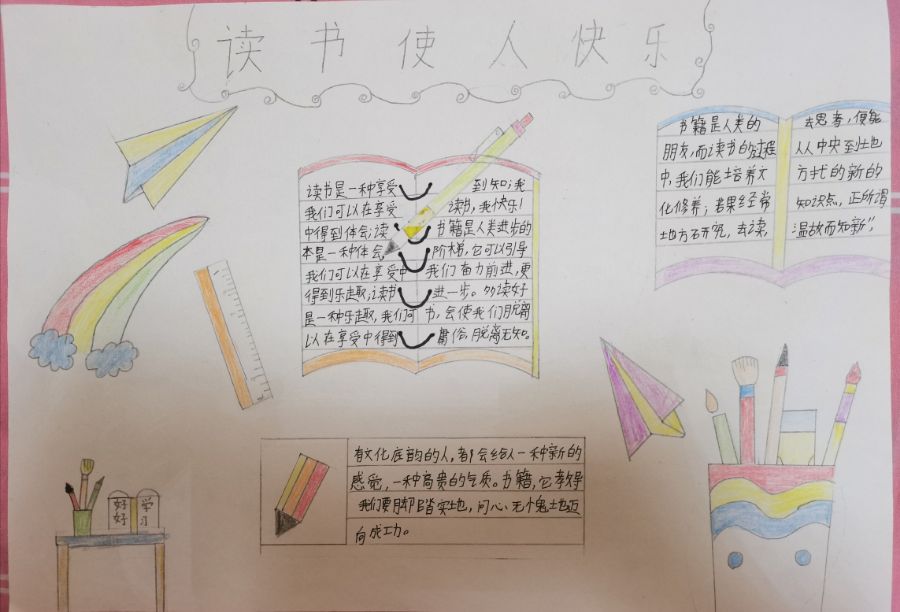 读书使人快乐
读书是一种享受
我们可以在享受
中得到体会;读
本是一种体会
我们可以在享受中
得到乐趣;读书
是一种乐趣,我们可
以在享受中得到
到知;我
读书,我快乐!
书籍是人类进步的
阶梯,它可以引导
我们奋力前进,更
进一步。多读好
书,会使我们脱离
庸俗,脱离无知。
书籍是人类的
朋友,而读书的过程
中,我们能培养文
化修养;若果经常
地方去研究,去读,
去思考,便能
从中央到地
方找的新的
知识点,正所谓
温故而知新”,
有文化底韵的人,都会给人一种新的
感觉,一种高贵的气质。书籍,它教导
我们要脚踏实地,问心无愧地迈
向成功。
好好
学习